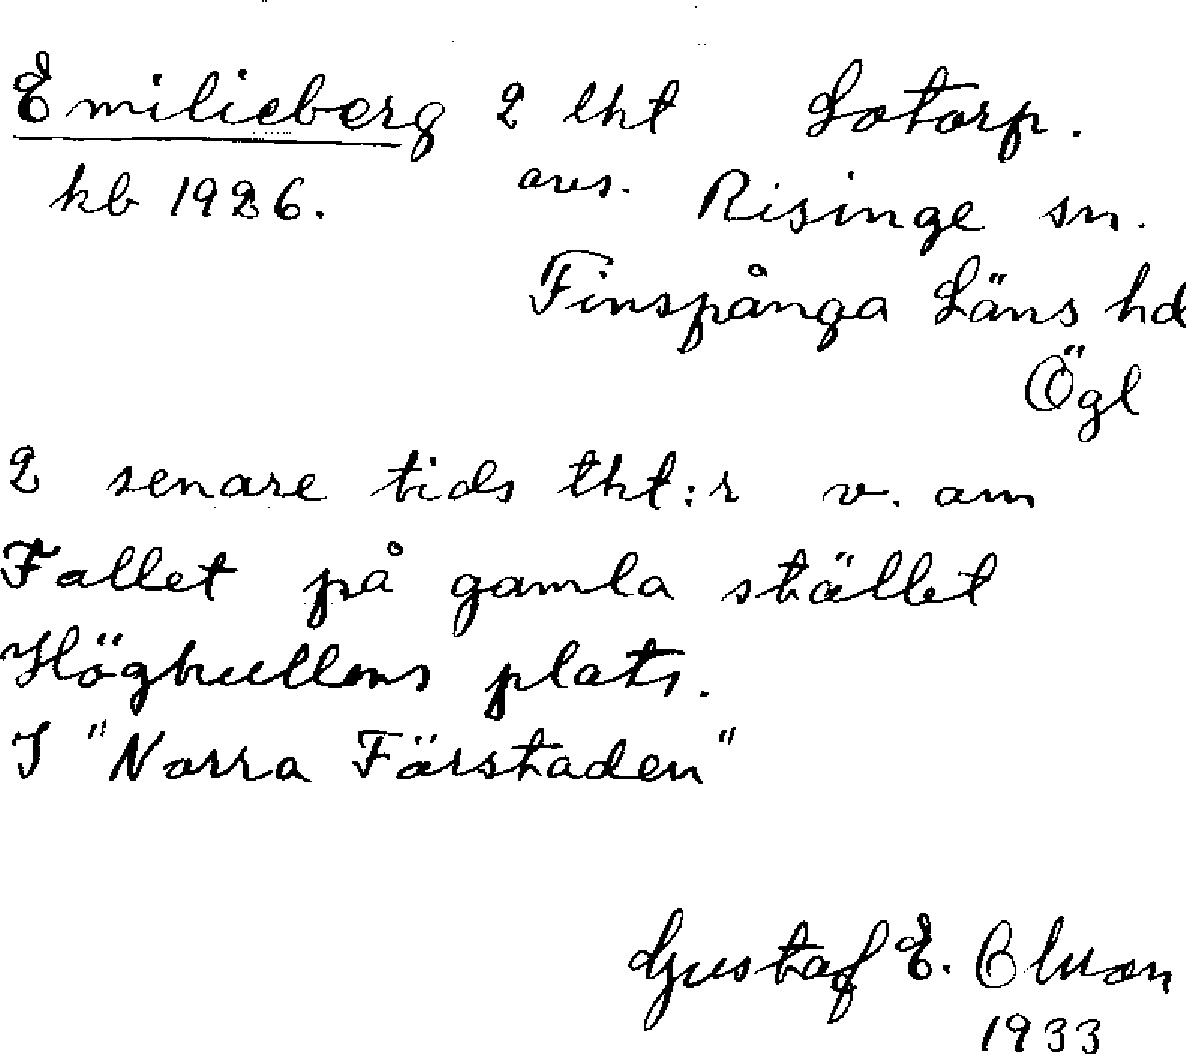 Emilieberg 2 lht Lotorp.
kb 1926. avs. Risinge sn.
Finspånga Läns hd
Ögl
2 senare tids lht:r v. om
Fallet på gamla stället
Högkullens plats.
I "Norra Förstaden"
Gustaf E. Olsson
1933